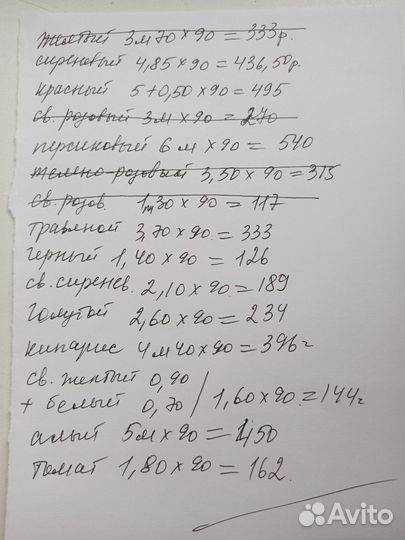 желтый 3м70 × 90 = 333р.
сиреновый 4,85 × 90 = 436,50р.
красный 5+0,50 × 90 = 495
св. розовый 3м × 90 = 270
персиковый 6 м × 90 = 540
желено-розовый 3,50 × 90 = 315
св. розов. 1,30 × 90 = 117
травяной 3,70 × 90 = 333
черный 1,40 × 90 = 126
св. сиренев. 2,10 × 90 = 189
голубой 2,60 × 90 = 234
кипарис 4м40 × 90 = 396
св. желтый 0,90
+ белый 0,70 / 1,60 × 90 = 144
алый 5м × 90 = 450
томат 1,80 × 90 = 162
Avito